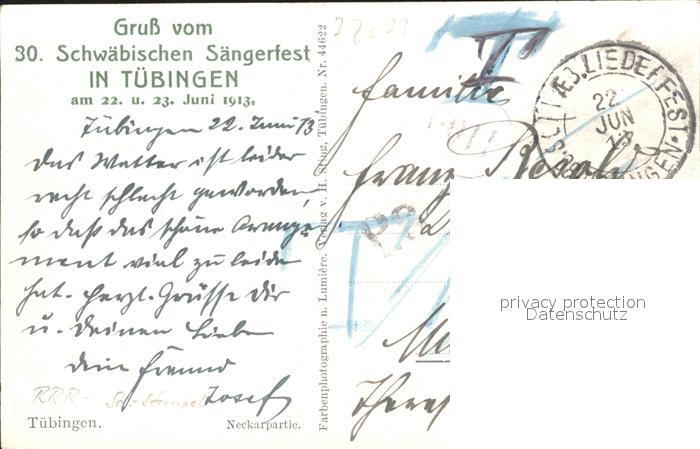 Gruß vom
30. Schwäbischen Sängerfest
IN TÜBINGEN
am 22. u. 23. Juni 1913.
Tübingen 22. Juni 13
Das Wetter ist leider
recht schlecht geworden,
so daß das schöne Arrange-
ment viel zu leiden
hat. Herzl. Grüsse Dir
u. Deinen Lieben
Dein Freund
Josef
RRR-
Tübingen.
Neckarpartie.
Farbenphotographie n. Lumière. Verlag v. H. Sting, Tübingen. Nr. 44622
Familie
Franz
22
JUN
13
privacy protection
Datenschutz